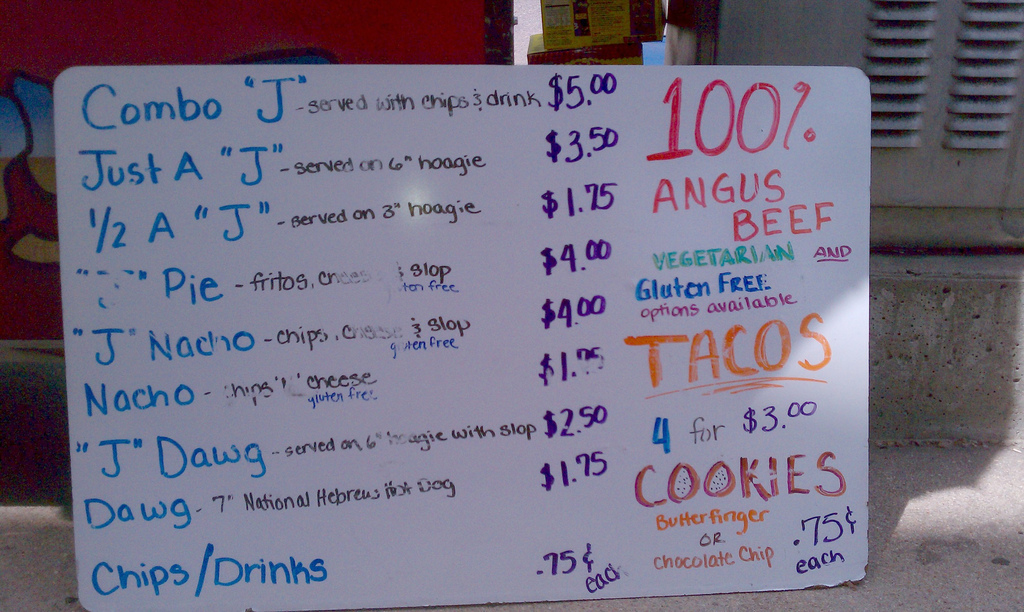 Combo "J" - served with chips & drink $5.00
Just A "J" - served on 6" hoagie $3.50
1/2 A "J" - served on 3" hoagie $1.75
Pie - fritos, & slop $4.00
free
"J" Nacho - chips, cheese & slop $4.00
gluten free
Nacho - cheese
gluten free
"J" Dawg - served on 6" hoagie with slop $2.50
Dawg - 7" National Hebrew Hot Dog $1.75
Chips/Drinks .75¢ each
100%
ANGUS
BEEF
VEGETARIAN AND
Gluten FREE
options available
TACOS
4 for $3.00
COOKIES
Butterfinger
OR
chocolate Chip
.75¢
each